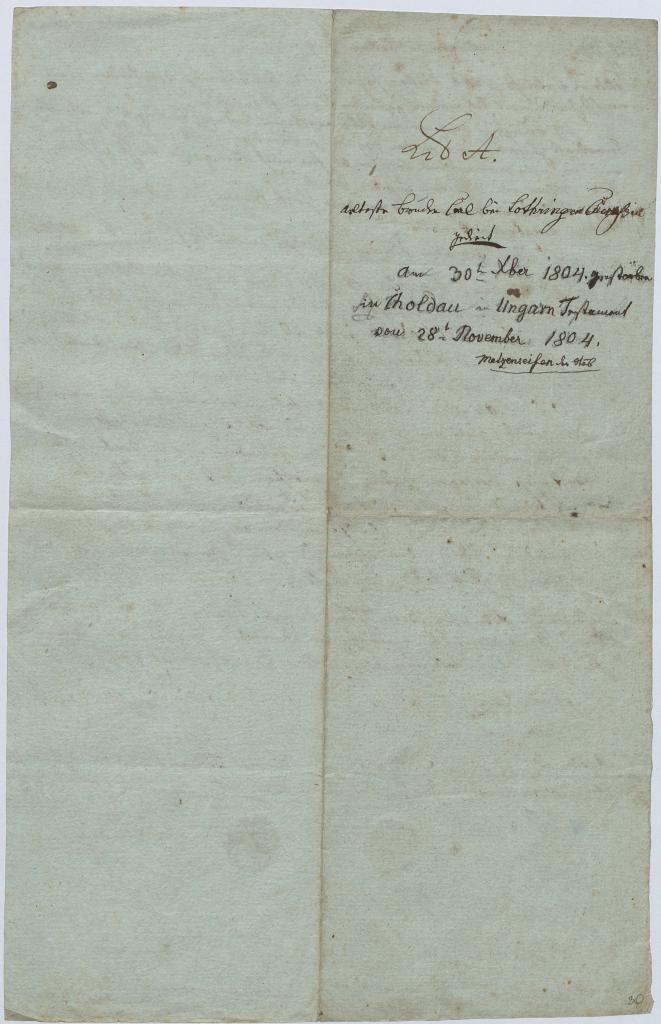 Lit A.
älteste bruder Carl bei Lothringen
gedient
am 30t Xber 1804. gestorben
in Choldau in Ungarn Testament
von 28t November 1804.
Metzenseifen
30